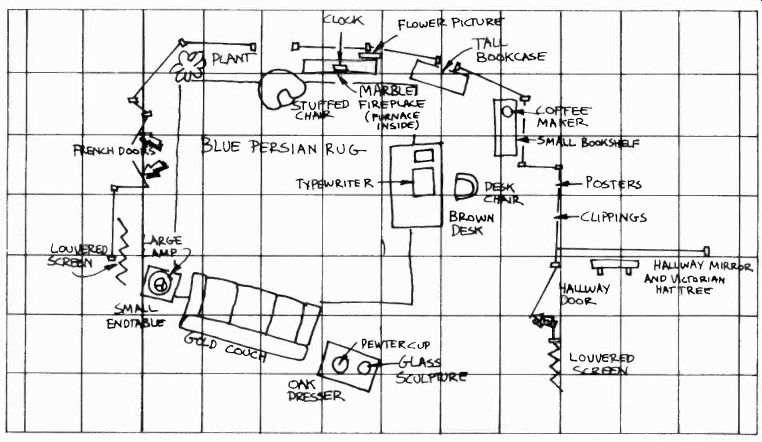 CLOCK
FLOWER PICTURE
TALL
BOOKCASE
PLANT
STUFFED
CHAIR
MARBLE
FIREPLACE
(FURNACE
INSIDE)
COFFEE
MAKER
SMALL BOOKSHELF
FRENCH DOORS
BLUE PERSIAN RUG
TYPEWRITER
DESK
CHAIR
BROWN
DESK
POSTERS
CLIPPINGS
LOUVERED
SCREEN
LARGE
LAMP
SMALL
ENDTABLE
GOLD COUCH
HALLWAY MIRROR
AND VICTORIAN
HAT TREE
HALLWAY
DOOR
PEWTER CUP
GLASS
SCULPTURE
OAK
DRESSER
LOUVERED
SCREEN